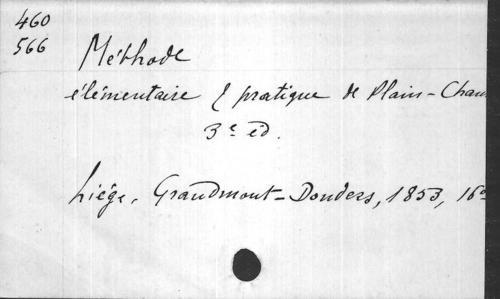 460
566
Méthode
élémentaire & pratique de Plain-Chan
3e éd.
Liége, Grandmont-Donders, 1853, 16o